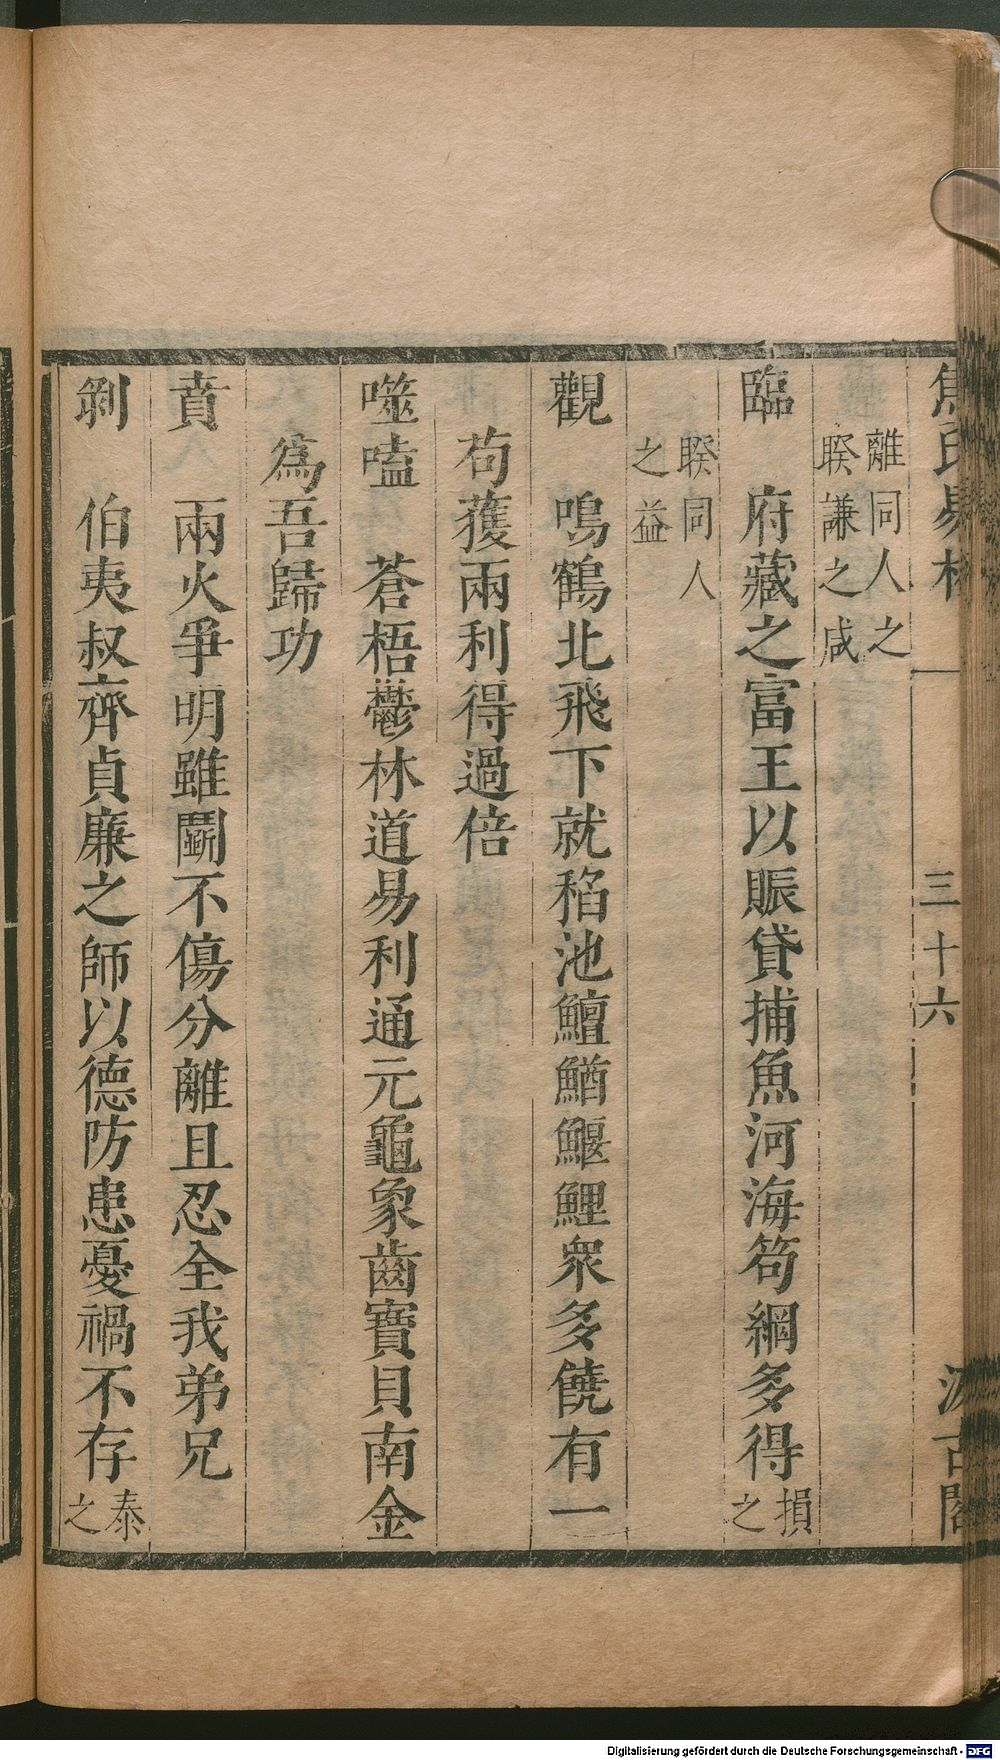 焦氏易林 一 三十六 汲古閣
離同人之
睽謙之咸
臨 府藏之富王以賑貸捕魚河海笱網多得損之
睽同人
之益
觀 鳴鶴北飛下就稻池鱣鰌鰋鯉衆多饒有一
茍獲兩利得過倍
噬嗑 蒼梧鬱林道易利通元龜象齒寶貝南金
爲吾歸功
賁 兩火爭明雖鬭不傷分離且忍全我弟兄
剝 伯夷叔齊貞廉之師以德防患憂禍不存泰之
Digitalisierung gefördert durch die Deutsche Forschungsgemeinschaft - DFG